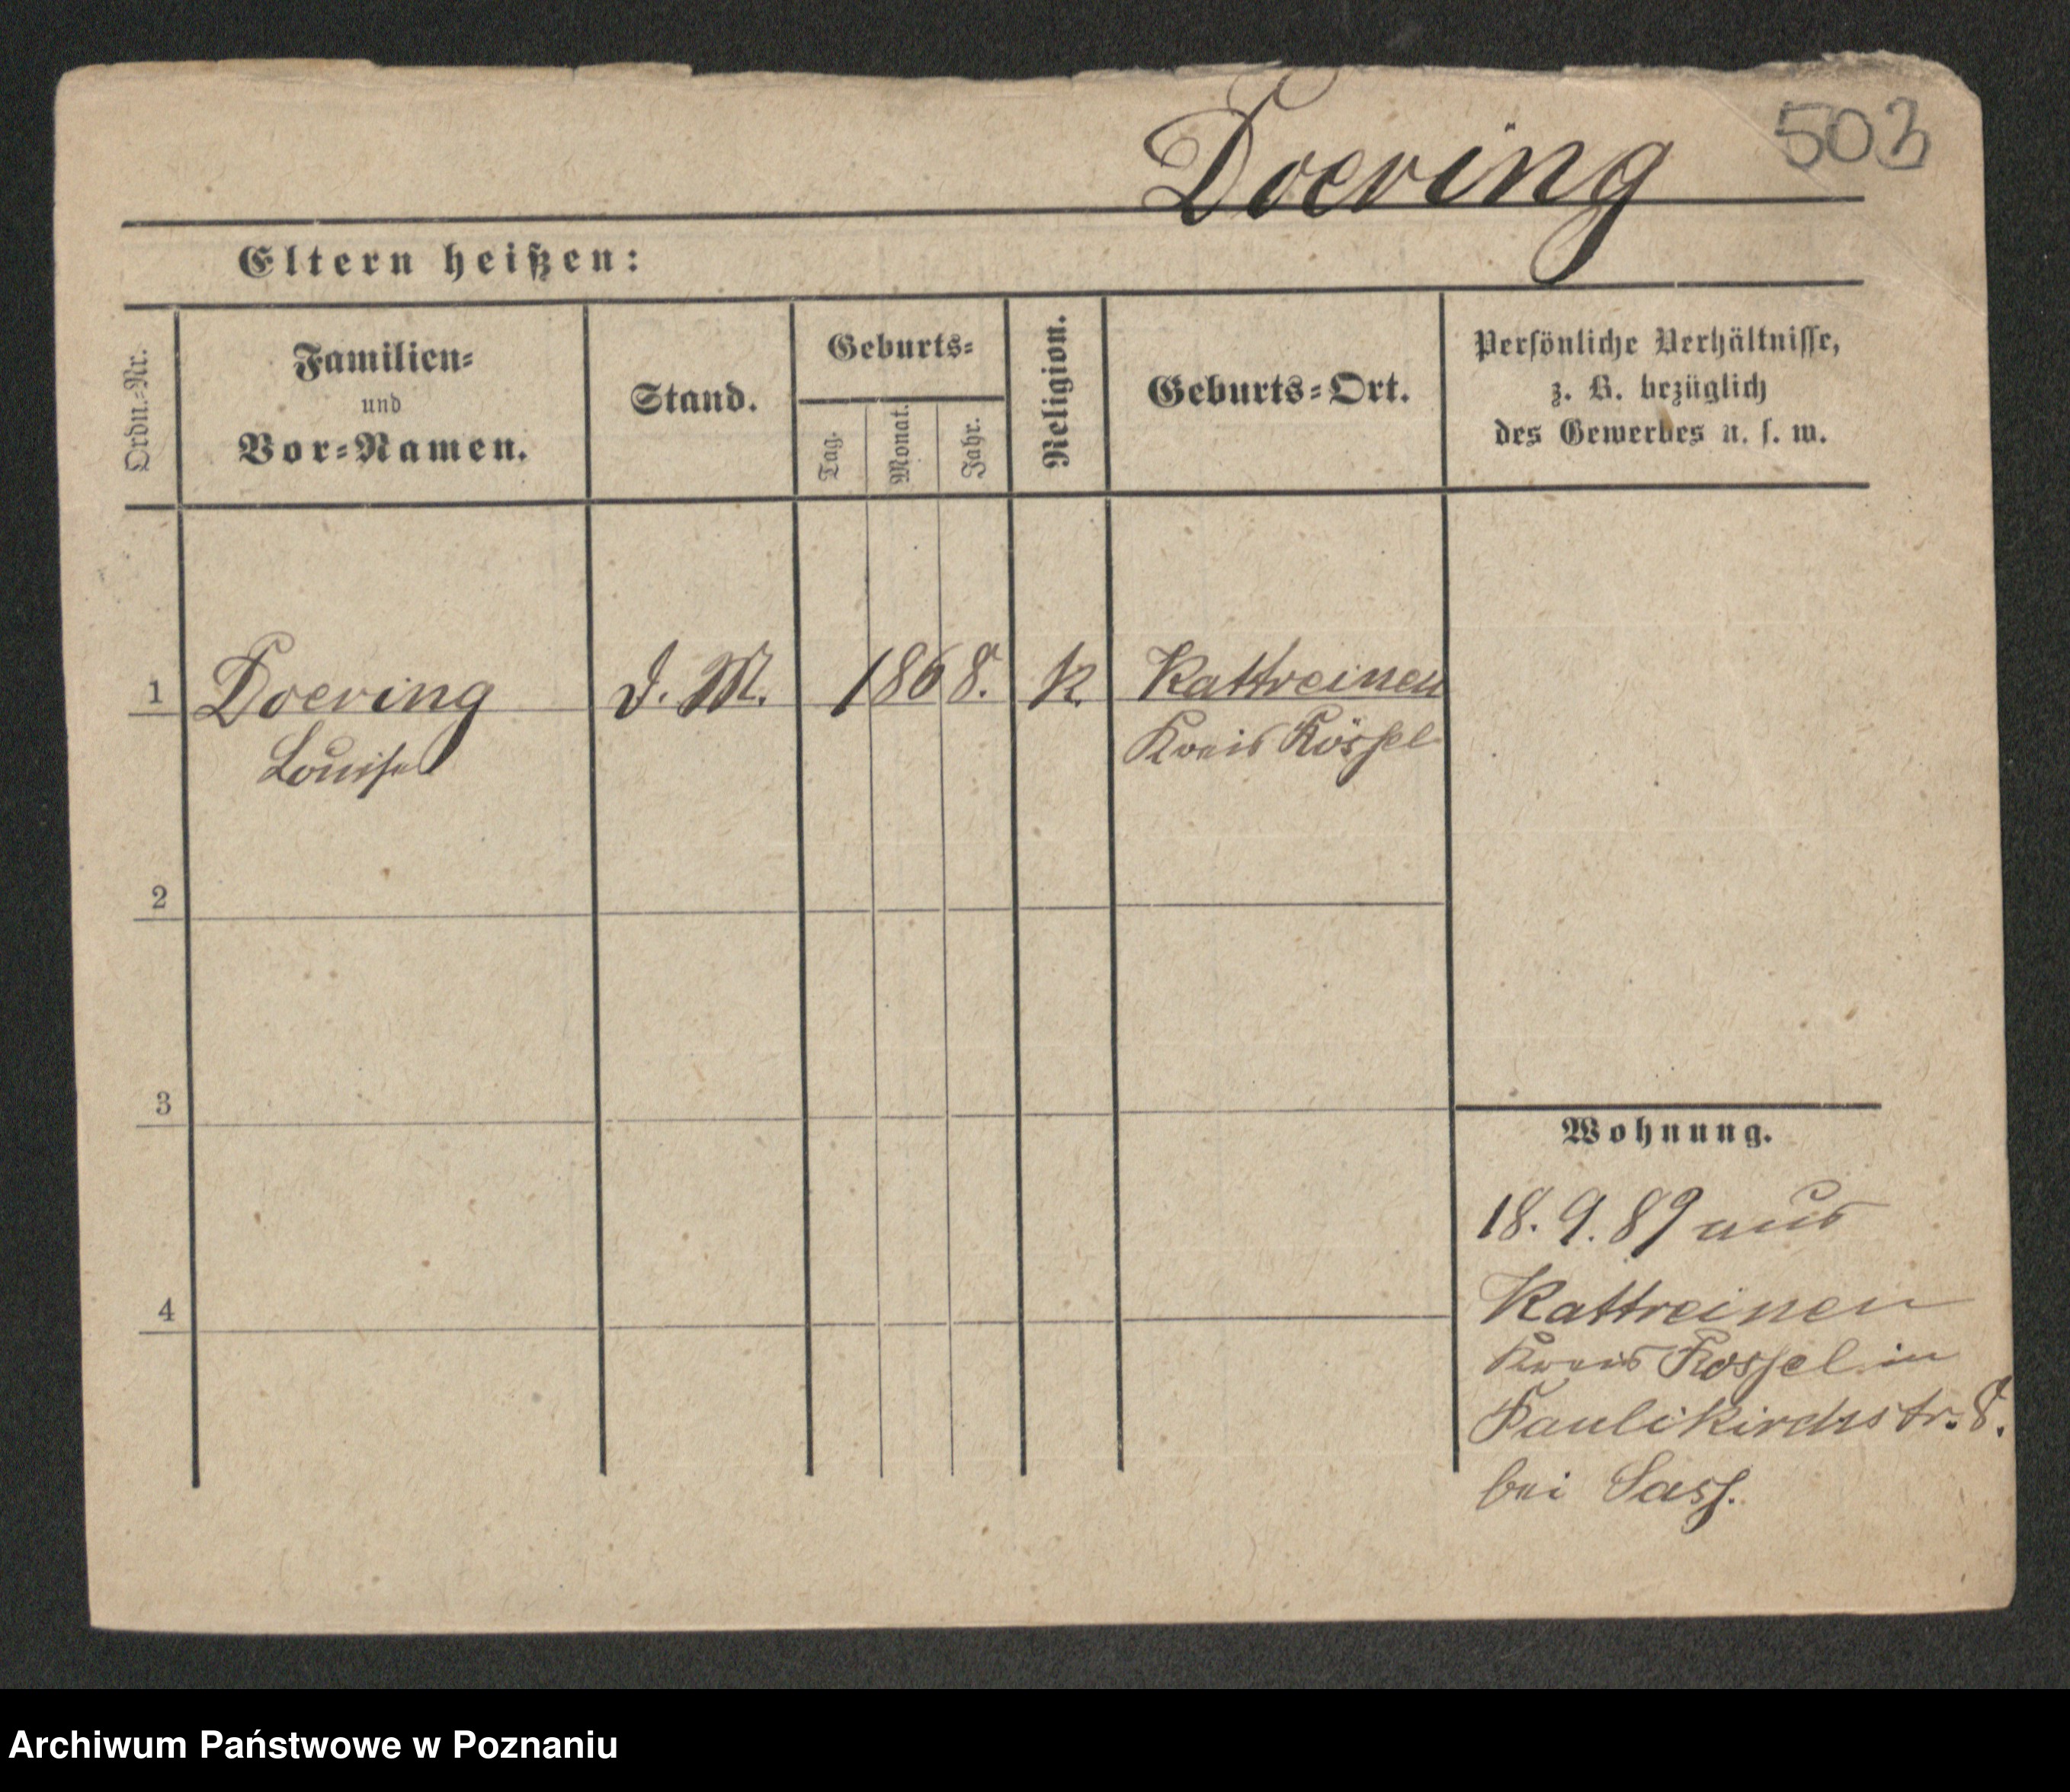 503
Doering
Eltern heißen:
Ordn.-Nr.
Familien-
und
Vor-Namen.
Stand.
Geburts-
Tag.
Monat.
Jahr.
Religion.
Geburts-Ort.
Persönliche Verhältnisse,
z. B. bezüglich
des Gewerbes u. s. w.
1 Doering d. M. 1868. K. Kattreinen
Louise Kreis Rössel
2
3
4
Wohnung.
18. 9. 89 aus
Kattreinen
Kreis Rossel in
Paulikirchstr. 8.
bei Sass.
Archiwum Państwowe w Poznaniu